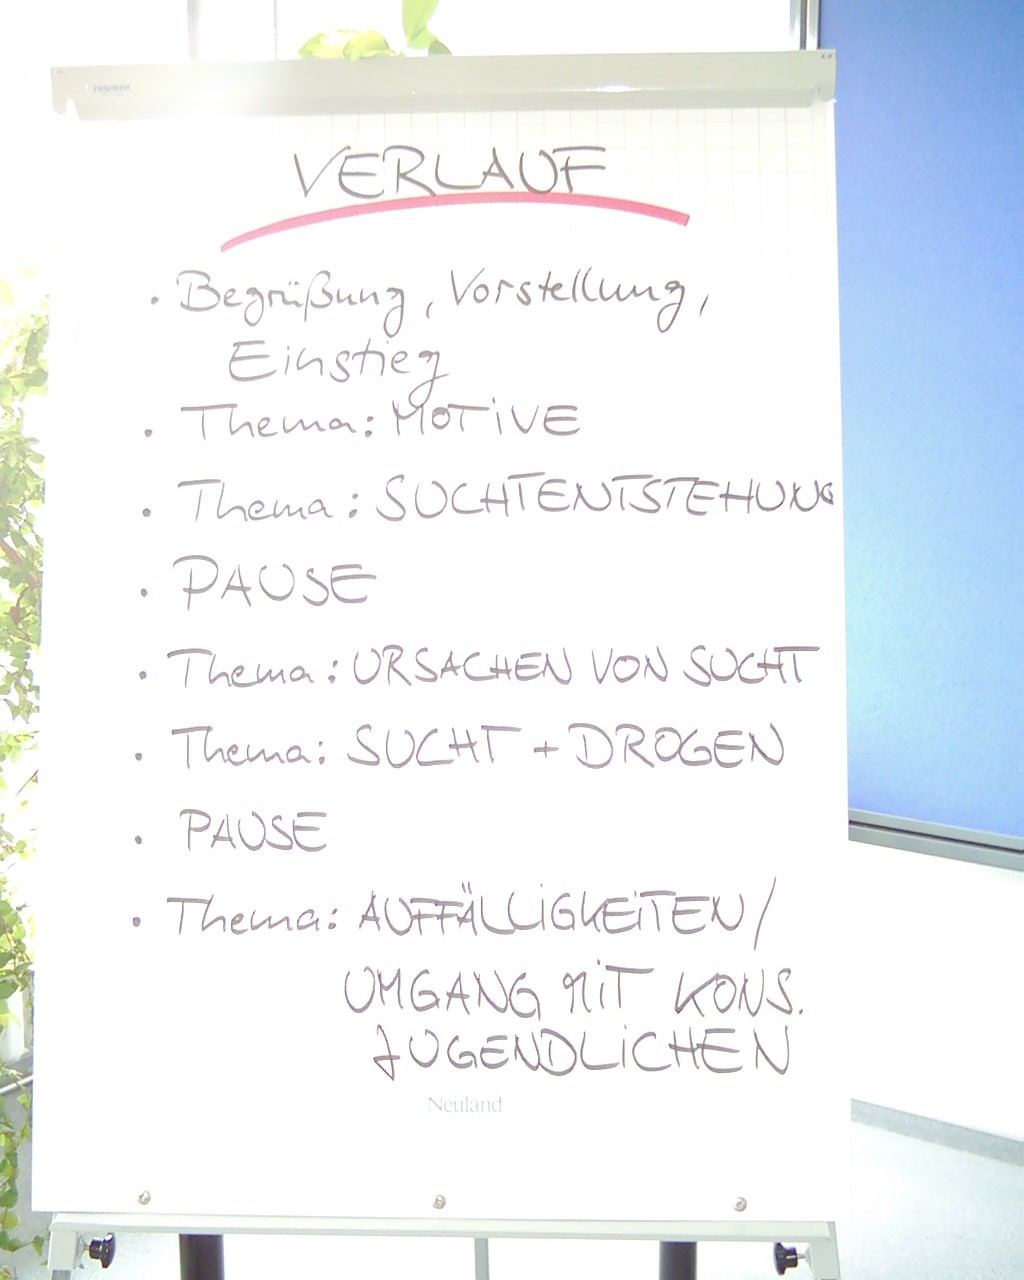 FRANKEN
VERLAUF
• Begrüßung, Vorstellung,
Einstieg
• Thema: MOTiVE
• Thema: SUCHTENTSTEHUNG
• PAUSE
• Thema: URSACHEN VON SUCHT
• Thema: SUCHT + DROGEN
• PAUSE
• Thema: AUFFÄLLiGKEiTEN/
UMGANG MiT KONS.
JUGENDLiCHEN
Neuland